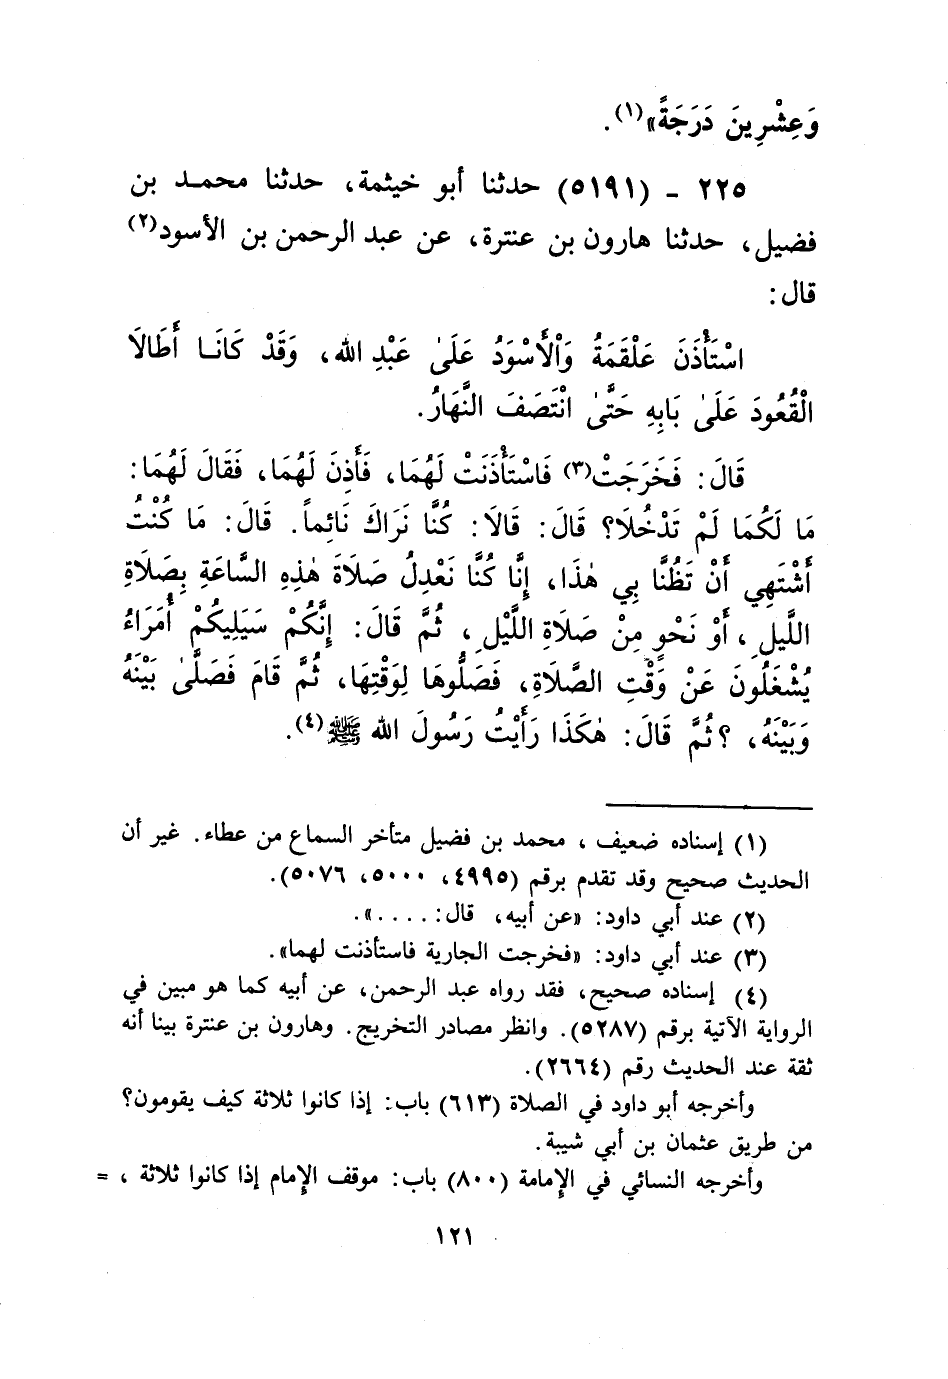 وَعِشْرِينَ دَرَجَةً»(١).
٢٢٥ ـ (٥١٩١) حدثنا أبو خيثمة، حدثنا محمـد بن
فضيل، حدثنا هارون بن عنترة، عن عبد الرحمن بن الأسود(٢)
قال:
اسْتَأْذَنَ عَلْقَمَةُ وَالْأَسْوَدُ عَلَىٰ عَبْدِ الله، وَقَدْ كَانَـا أَطَالَا
الْقُعُودَ عَلَىٰ بَابِهِ حَتَّىٰ انْتَصَفَ النَّهَارُ.
قَالَ: فَخَرَجَتْ(٣) فَاسْتَأْذَنَتْ لَهُمَا، فَأَذِنَ لَهُمَا، فَقَالَ لَهُمَا:
مَا لَكُمَا لَمْ تَدْخُلَا؟ قَالَ: قَالَا: كُنَّا نَرَاكَ نَائِماً. قَالَ: مَا كُنْتُ
أَشْتَهِي أَنْ تَظُنَّا بِي هٰذَا، إِنَّا كُنَّا نَعْدِلُ صَلَاةَ هٰذِهِ السَّاعَةِ بِصَلَاةِ
اللَّيلِ، أَوْ نَحْوٍ مِنْ صَلَاةِ اللَّيْلِ، ثُمَّ قَالَ: إِنَّكُمْ سَيَلِيكُمْ أُمَرَاءُ
يُشْغَلُونَ عَنْ وَقْتِ الصَّلَاةِ، فَصَلُّوهَا لِوَقْتِهَا، ثُمَّ قَامَ فَصَلَّىٰ بَيْنَهُ
وَبَيْنَهُ، ؟ ثُمَّ قَالَ: هٰكَذَا رَأَيْتُ رَسُولَ الله ﷺ(٤).
(١) إسناده ضعيف، محمد بن فضيل متأخر السماع من عطاء. غير أن
الحديث صحيح وقد تقدم برقم (٤٩٩٥، ٥٠٠٠، ٥٠٧٦).
(٢) عند أبي داود: «عن أبيه، قال: ....».
(٣) عند أبي داود: «فخرجت الجارية فاستأذنت لهما».
(٤) إسناده صحيح، فقد رواه عبد الرحمن، عن أبيه كما هو مبين في
الرواية الآتية برقم (٥٢٨٧). وانظر مصادر التخريج. وهارون بن عنترة بينا أنه
ثقة عند الحديث رقم (٢٦٦٤).
وأخرجه أبو داود في الصلاة (٦١٣) باب: إذا كانوا ثلاثة كيف يقومون؟
من طريق عثمان بن أبي شيبة.
وأخرجه النسائي في الإمامة (٨٠٠) باب: موقف الإمام إذا كانوا ثلاثة، =
١٢١